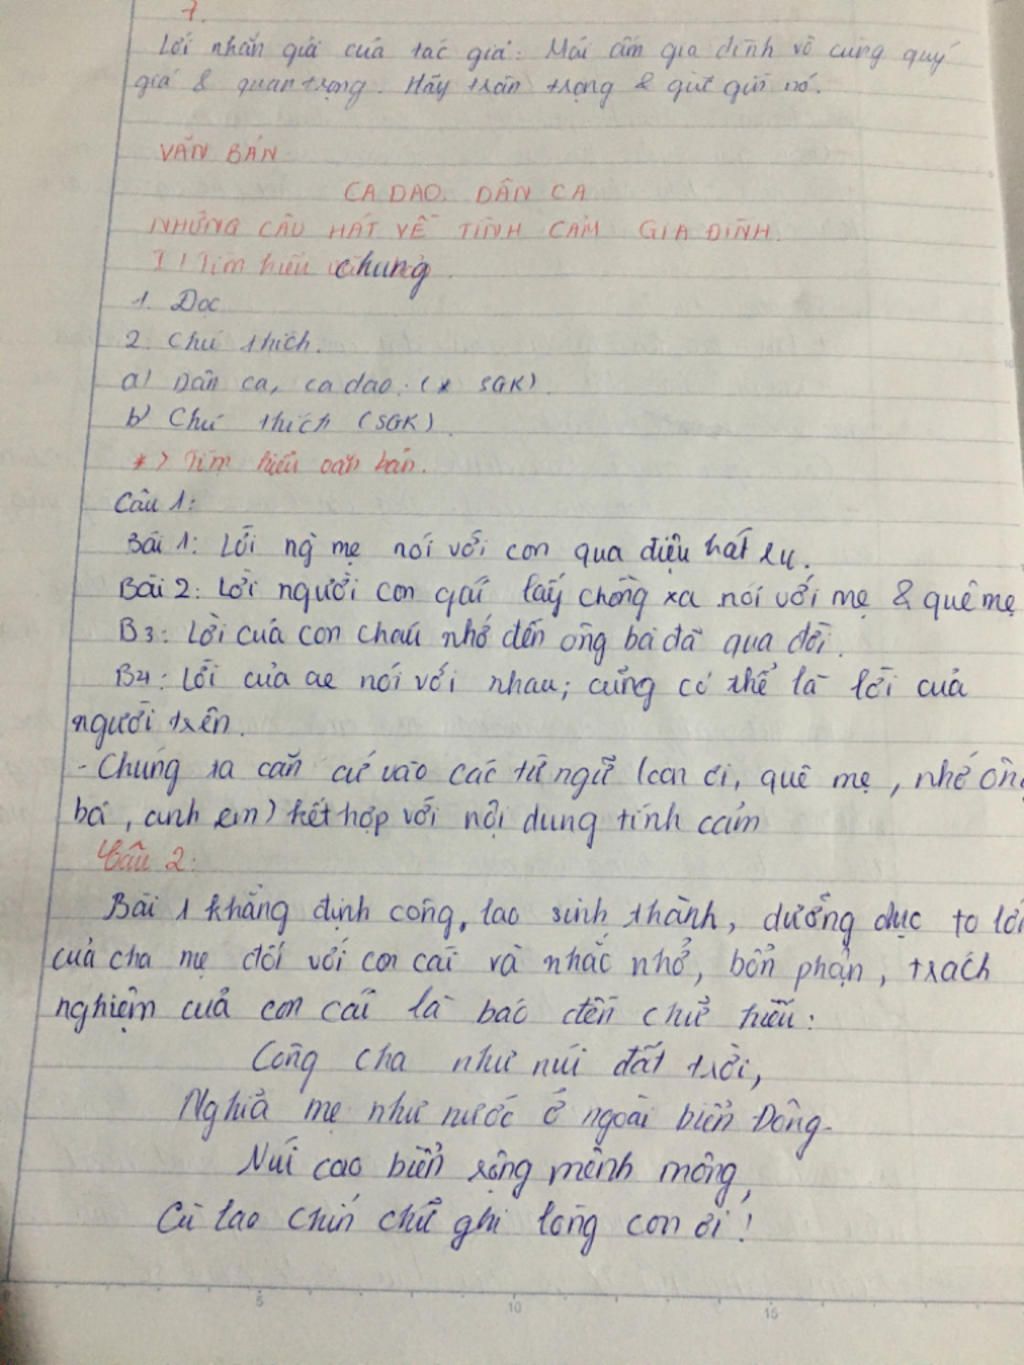 7.
Lời nhắn gửi của tác giả: Mái ấm gia đình vô cùng quý
giá & quan trọng. Hãy trân trọng & giữ gìn nó.
VĂN BẢN
CA DAO, DÂN CA
NHỮNG CÂU HÁT VỀ TÌNH CẢM GIA ĐÌNH.
I / Tìm hiểu chung.
1. Đọc
2. Chú thích.
a) Dân ca, ca dao: (* SGK).
b) Chú thích (SGK).
* > Tìm hiểu văn bản.
Câu 1:
Bài 1: Lời ng` mẹ nói với con qua điệu hát ru.
Bài 2: Lời người con gái lấy chồng xa nói với mẹ & quê mẹ
B3: Lời của con cháu nhớ đến ông bà đã qua đời.
B4: Lời của ae nói với nhau; cũng có thể là lời của
người trên.
- Chúng ta căn cứ vào các từ ngữ (con ơi, quê mẹ, nhớ ông
bà, anh em) kết hợp với nội dung tình cảm
Câu 2:
Bài 1 khẳng định công, lao sinh thành, dưỡng dục to lớ
của cha mẹ đối với con cái và nhắc nhở, bổn phận, trách
nghiệm của con cái là báo đền chữ hiếu:
Công cha như núi đất trời,
Nghĩa mẹ như nước ở ngoài biển Đông.
Núi cao biển rộng mênh mông,
Cù lao chín chữ ghi lòng con ơi!
5 10 15